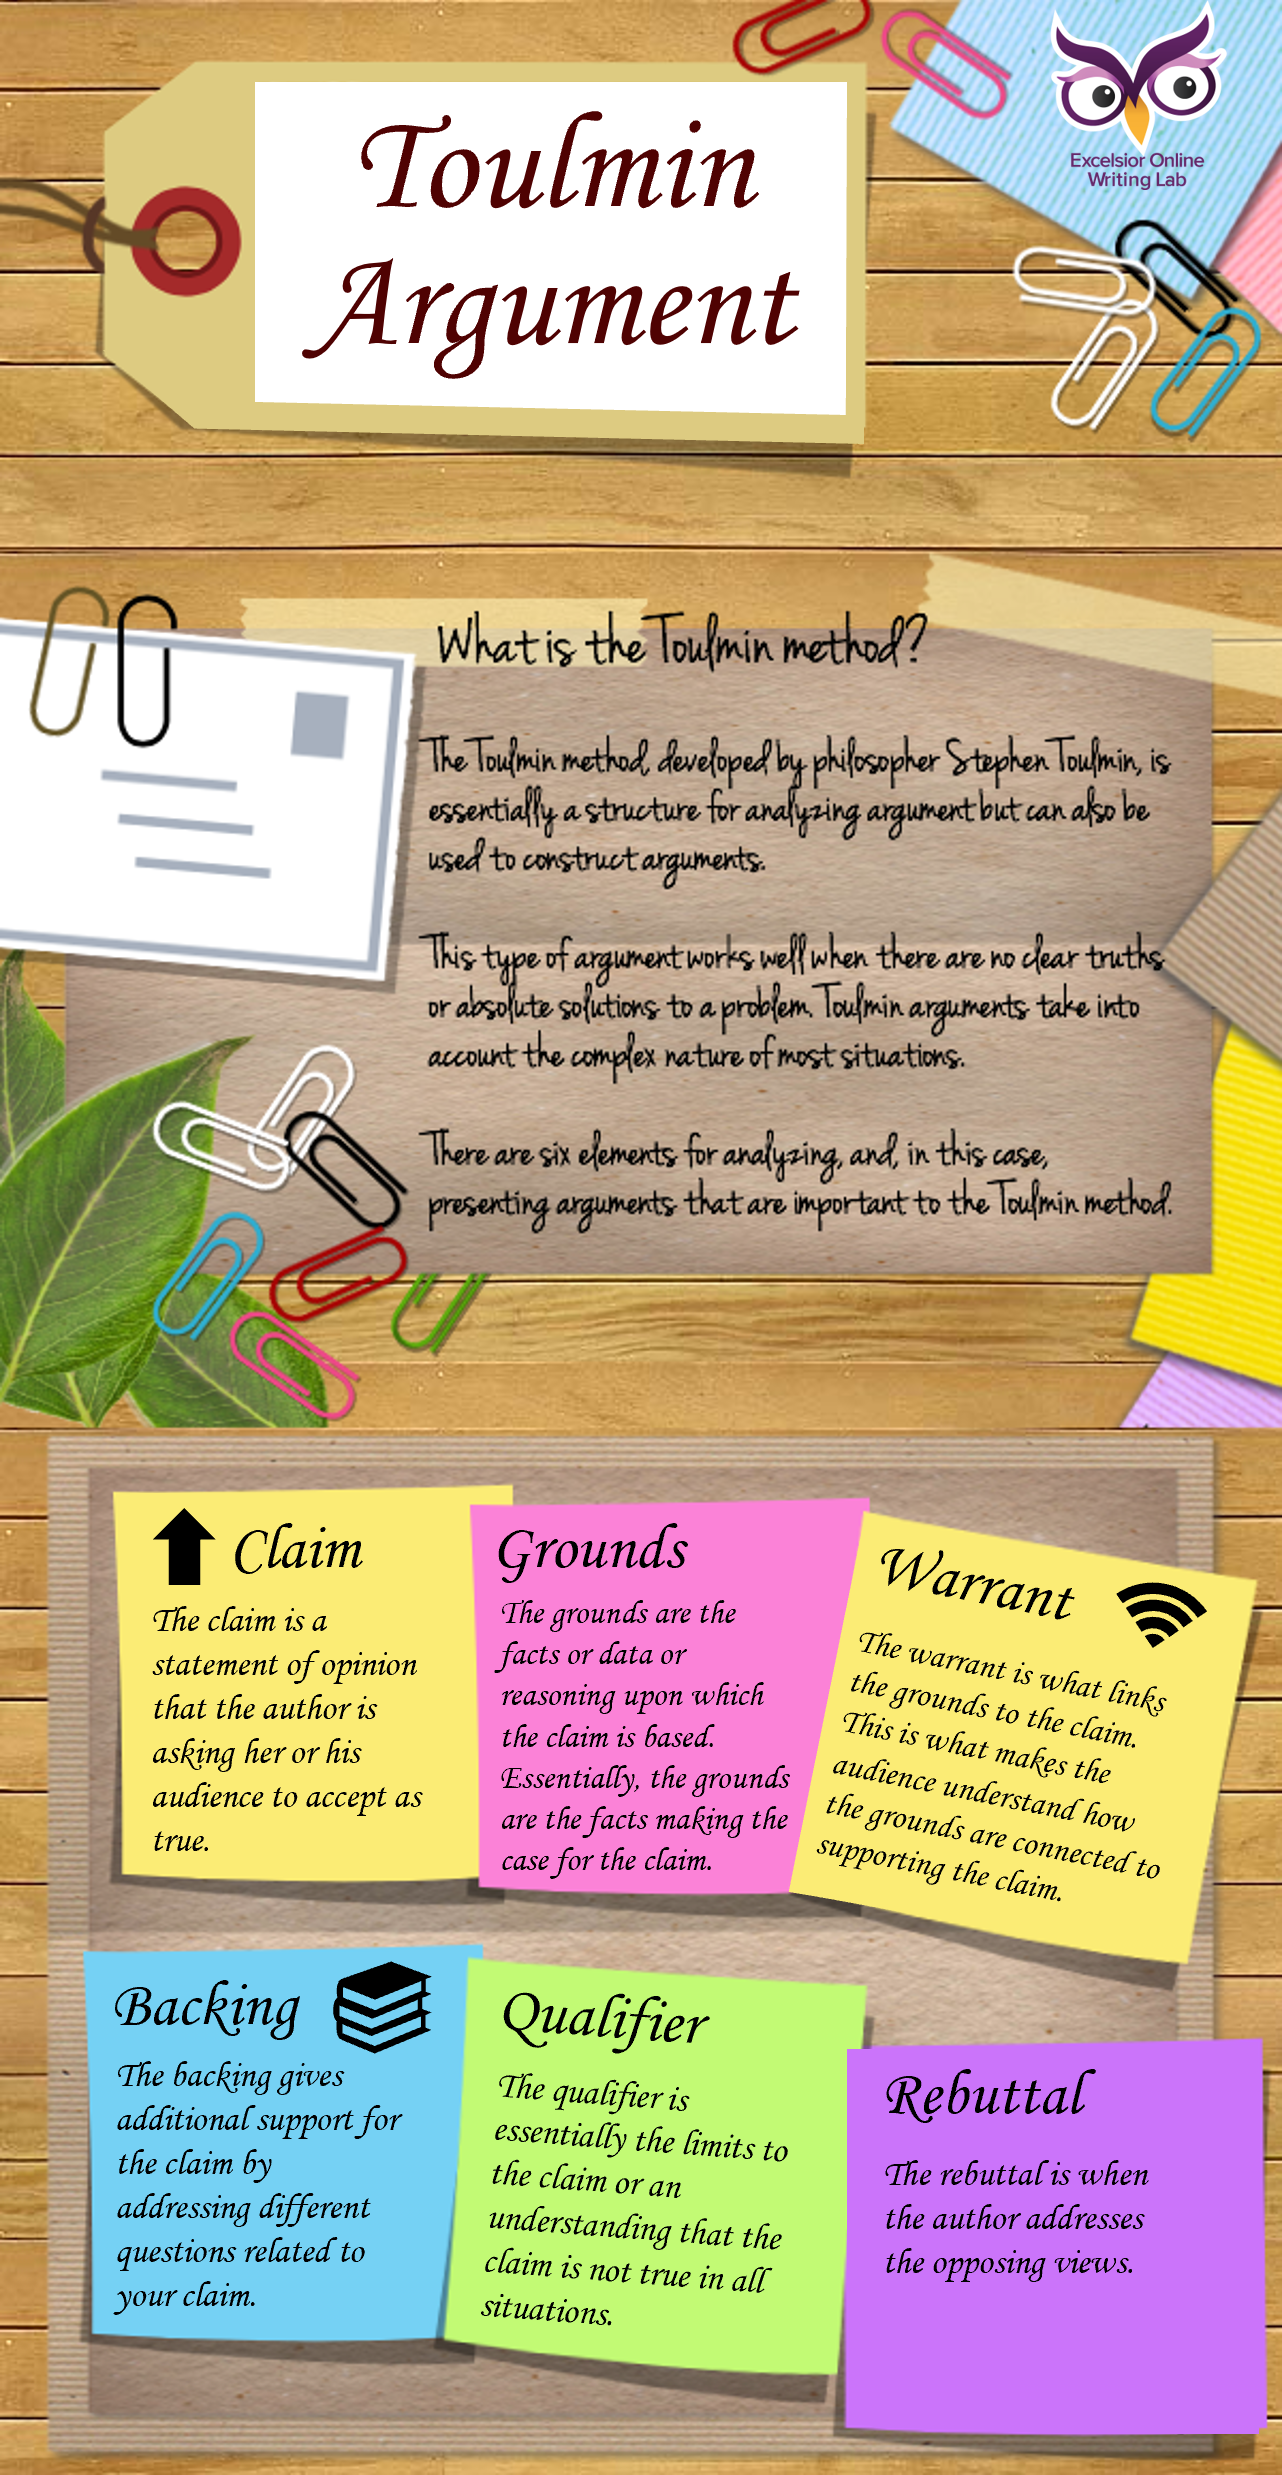 Toulmin
Argument
Excelsior Online
Writing Lab
What is the Toulmin method?
The Toulmin method, developed by philosopher Stephen Toulmin, is
essentially a structure for analyzing argument but can also be
used to construct arguments.
This type of argument works well when there are no clear truths
or absolute solutions to a problem. Toulmin arguments take into
account the complex nature of most situations.
There are six elements for analyzing, and, in this case,
presenting arguments that are important to the Toulmin method.
Claim
The claim is a
statement of opinion
that the author is
asking her or his
audience to accept as
true.
Grounds
The grounds are the
facts or data or
reasoning upon which
the claim is based.
Essentially, the grounds
are the facts making the
case for the claim.
Warrant
The warrant is what links
the grounds to the claim.
This is what makes the
audience understand how
the grounds are connected to
supporting the claim.
Backing
The backing gives
additional support for
the claim by
addressing different
questions related to
your claim.
Qualifier
The qualifier is
essentially the limits to
the claim or an
understanding that the
claim is not true in all
situations.
Rebuttal
The rebuttal is when
the author addresses
the opposing views.